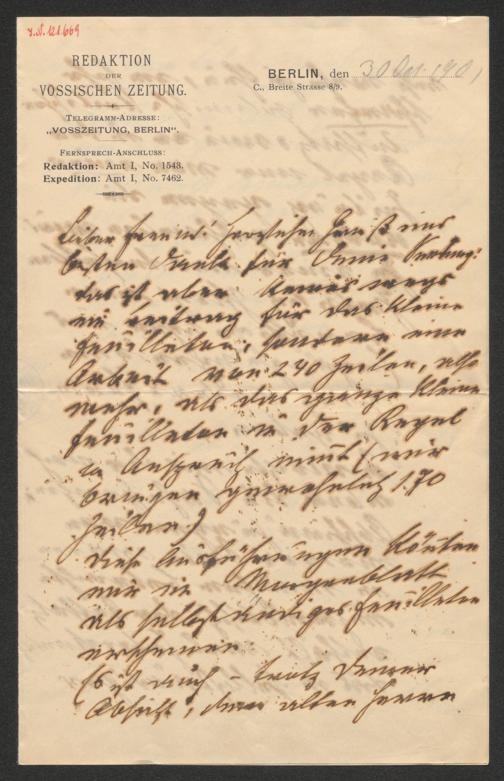 J.N. 121.669
REDAKTION
DER
VOSSISCHEN ZEITUNG.
TELEGRAMM-ADRESSE:
„VOSSZEITUNG, BERLIN“.
FERNSPRECH-ANSCHLUSS:
Redaktion: Amt I, No. 1543.
Expedition: Amt I, No. 7462.
BERLIN, den 30 Oct 1901
C., Breite Strasse 8/9.
Lieber Freund! Herzlichen Gruß und
besten Dank für Deine Sendung:
das ist aber keineswegs
ein Beitrag für das kleine
Feuilleton, sondern eine
Arbeit von 240 Zeilen, also
mehr, als das ganze kleine
Feuilleton in der Regel
in Anspruch nimt (wir
bringen gewöhnlich 170
Zeilen.)
Diese Ausführungen könten
nur im Morgenblatt
als selbständiges Feuilleton
erscheinen.
Es ist auch – trotz Deiner
Absicht, dem alten Herrn